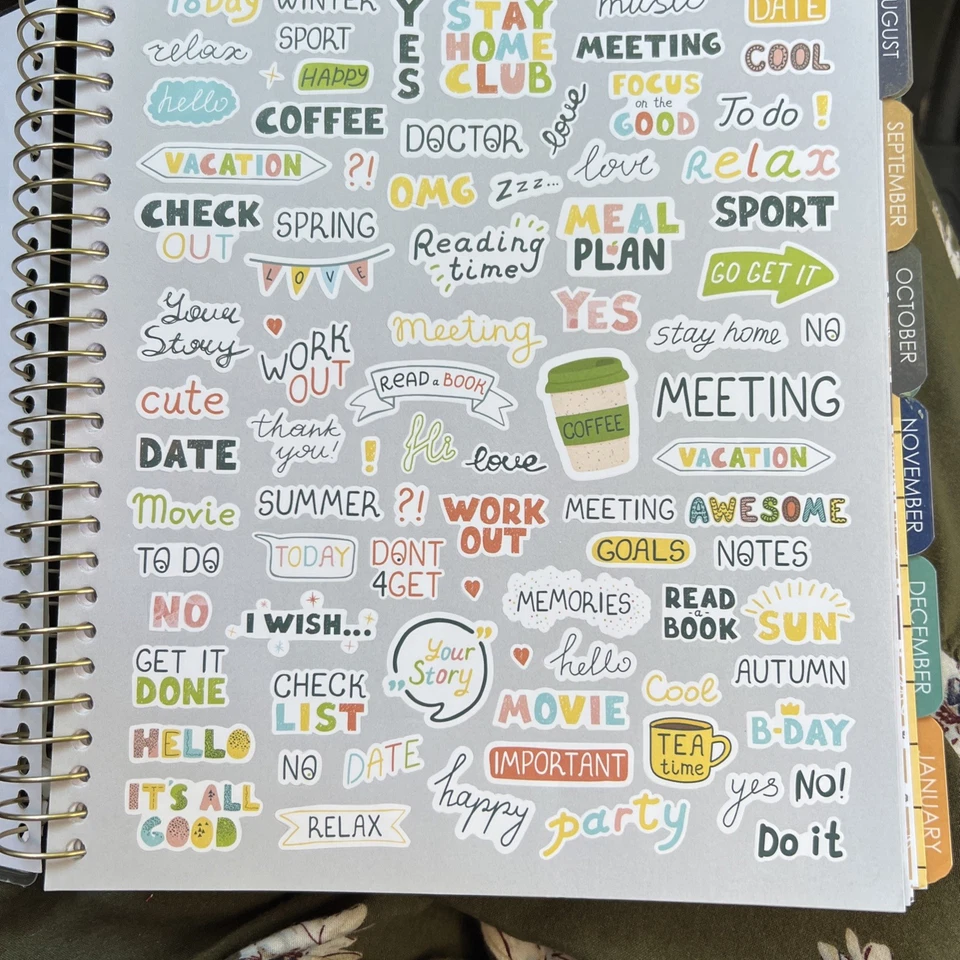 TODAY
WINTER
YES
STAY
HOME
CLUB
music
DATE
relax
SPORT
MEETING
COOL
HAPPY
hello
COFFEE
DOCTOR
love
FOCUS
on the
GOOD
To do !
VACATION
?!
OMG
zzz...
love
Relax
CHECK
OUT
SPRING
Reading
time
MEAL
PLAN
SPORT
LOVE
GO GET IT
Your
Story
WORK
OUT
Meeting
YES
stay home
NO
cute
READ a BOOK
COFFEE
MEETING
DATE
thank
you!
!
Hi
love
VACATION
Movie
SUMMER
?!
WORK
OUT
MEETING
AWESOME
TO DO
TODAY
DONT
4GET
GOALS
NOTES
NO
I WISH...
MEMORIES
READ
a
BOOK
SUN
GET IT
DONE
CHECK
LIST
"Your
Story"
hello
Cool
AUTUMN
HELLO
NO
DATE
MOVIE
IMPORTANT
TEA
time
B-DAY
IT'S ALL
GOOD
RELAX
happy
party
yes
NO!
Do it
AUGUST
SEPTEMBER
OCTOBER
NOVEMBER
DECEMBER
JANUARY